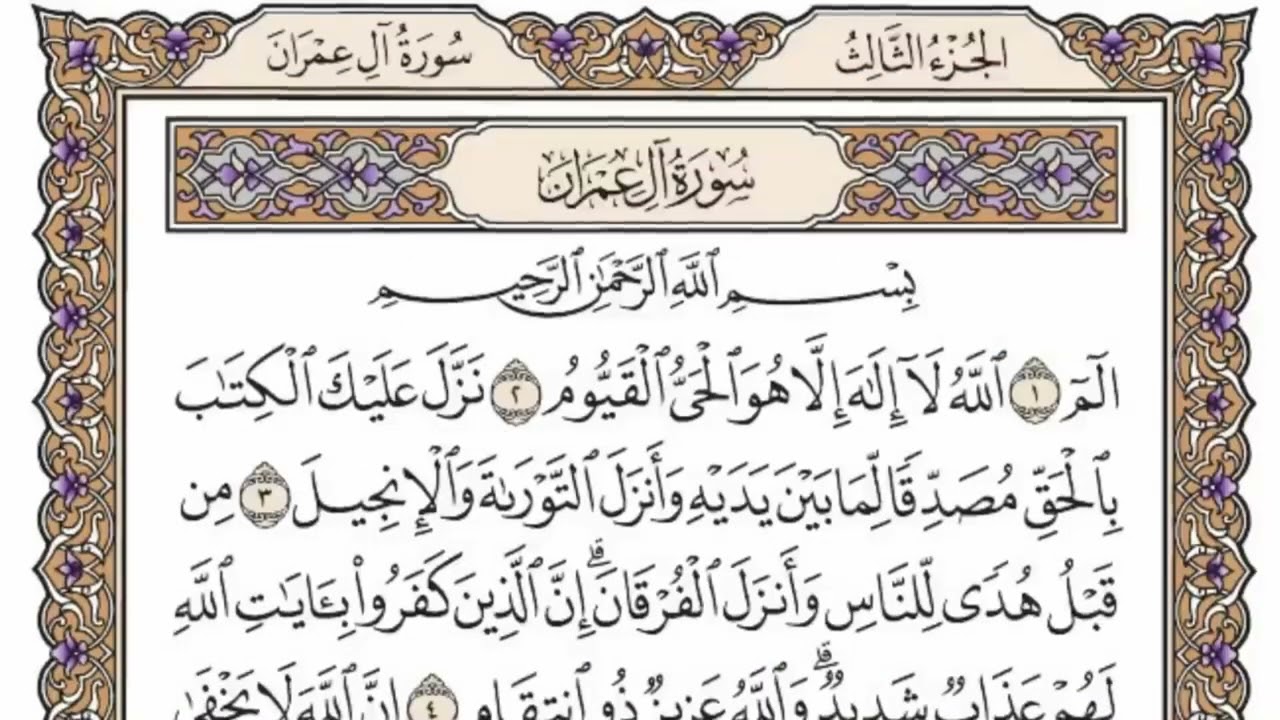 الجُزْءُ الثَّالِثُ
سُورَةُ آلِ عِمْرَانَ
سُورَةُ آلِ عِمْرَانَ
بِسْمِ ٱللَّهِ ٱلرَّحْمَٰنِ ٱلرَّحِيمِ
الٓمٓ ١ ٱللَّهُ لَآ إِلَٰهَ إِلَّا هُوَ ٱلْحَىُّ ٱلْقَيُّومُ ٢ نَزَّلَ عَلَيْكَ ٱلْكِتَٰبَ
بِٱلْحَقِّ مُصَدِّقًا لِّمَا بَيْنَ يَدَيْهِ وَأَنزَلَ ٱلتَّوْرَىٰةَ وَٱلْإِنجِيلَ ٣ مِن
قَبْلُ هُدًى لِّلنَّاسِ وَأَنزَلَ ٱلْفُرْقَانَ ۗ إِنَّ ٱلَّذِينَ كَفَرُوا۟ بِـَٔايَٰتِ ٱللَّهِ
لَهُمْ عَذَابٌ شَدِيدٌ ۗ وَٱللَّهُ عَزِيزٌ ذُو ٱنتِقَامٍ ٤ إِنَّ ٱللَّهَ لَا يَخْفَىٰ